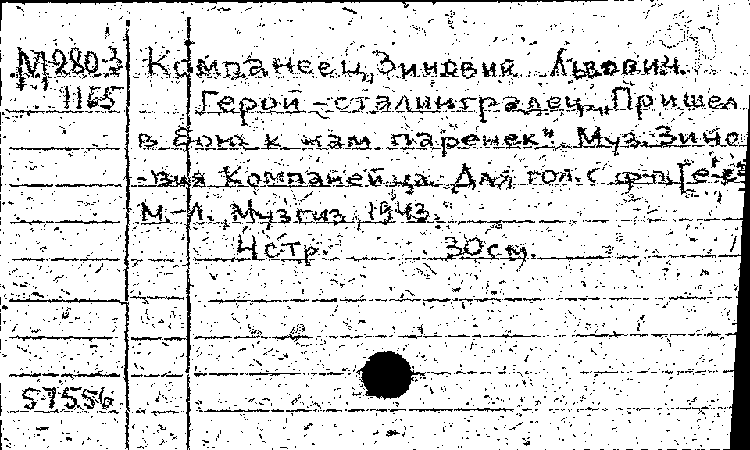 М280-3 Компанеец, Зиновий Львович.
1165 Герой-сталинградец. „Пришел
в бою к нам паренек". Муз. Зино
-вия Компанейца. Для гол. с ф-п.
М.-Л., Музгиз, 1943.
4 стр. 30 см.
57556